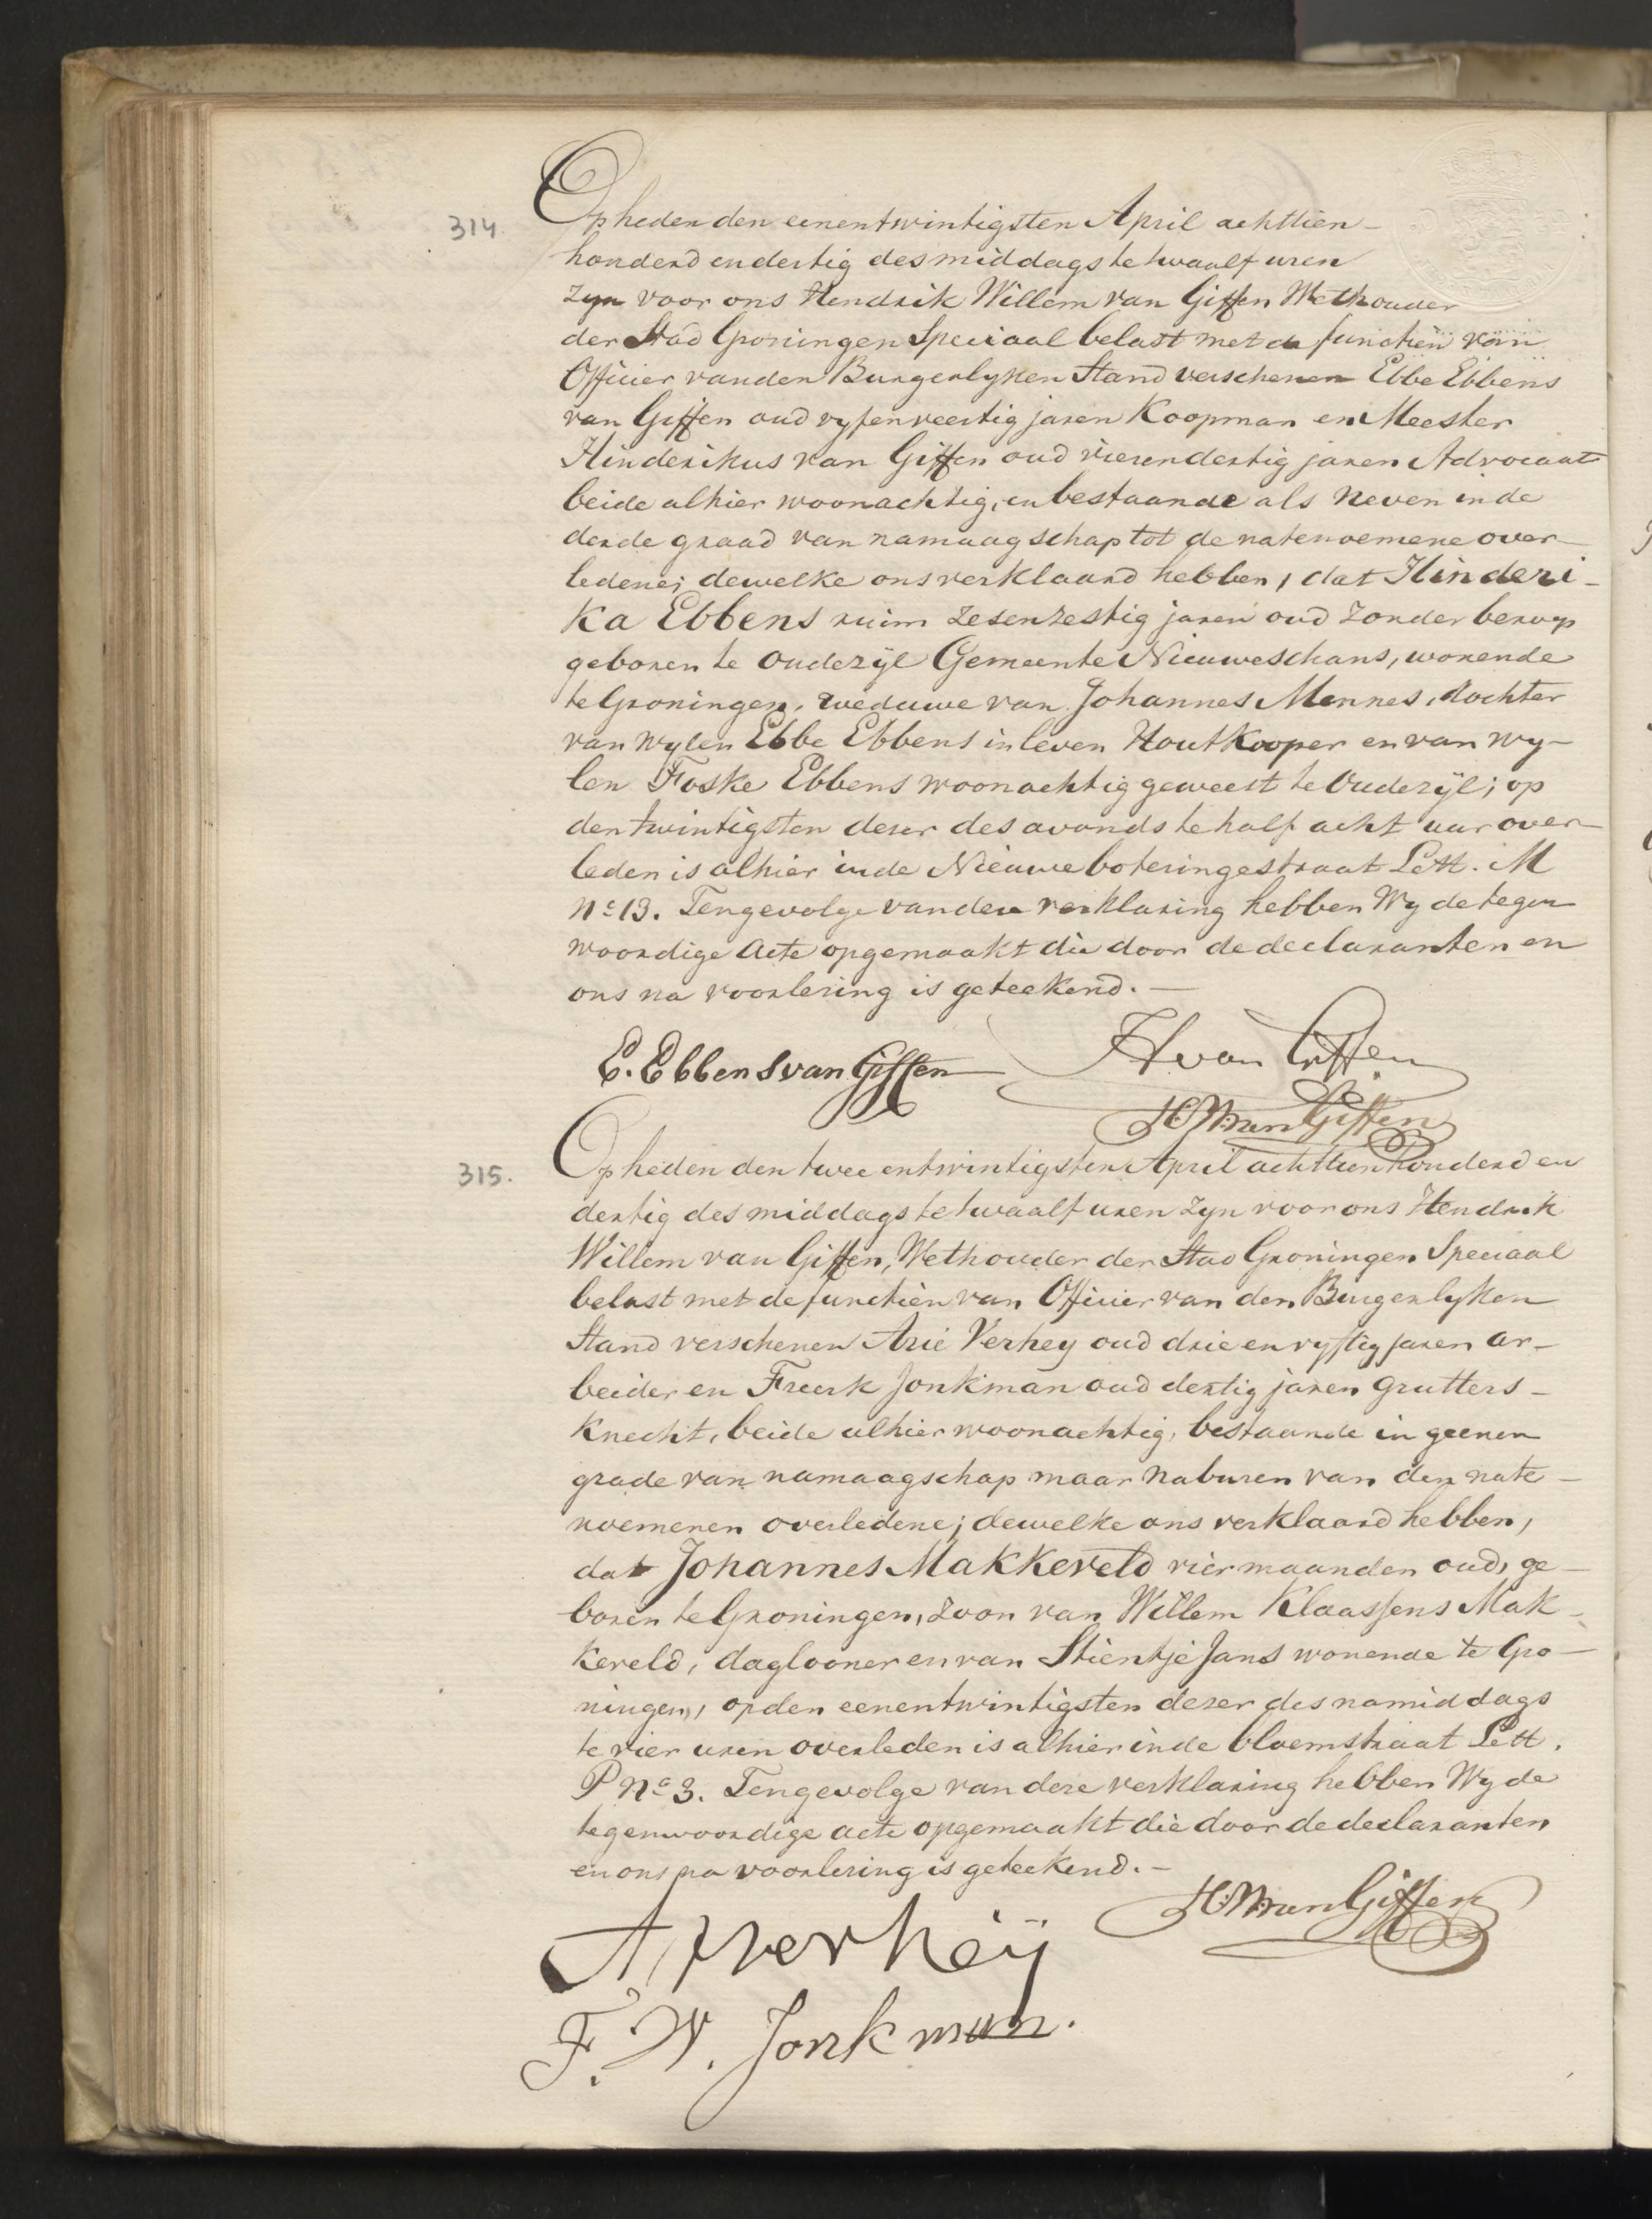 314. Op heden den eenentwintigsten April achttien-
honderd en dertig des middags te twaalf uren
zyn voor ons Hendrik Willem van Giffen Wethouder
der Stad Groningen Speciaal belast met de functiën van
Officier van den Burgerlyken Stand verschenen Ebbe Ebbens
van Giffen oud vyfenveertig jaren Koopman en Meester
Hinderikus van Giffen oud vierendertig jaren Advocaat
beide alhier woonachtig, en bestaande als Neven in de
derde graad van namaagschap tot de natenoemene over-
ledene; dewelke ons verklaard hebben, dat Hinderi-
ka Ebbens ruim zesenzestig jaren oud zonder beroep
geboren te Oudezijl Gemeente Nieuweschans, wonende
te Groningen, weduwe van Johannes Mennes, dochter
van wylen Ebbe Ebbens in leven Houtkooper en van wy-
len Foske Ebbens woonachtig geweest te Oudezijl; op
den twintigsten dezer des avonds te half acht uur over-
leden is alhier in de Nieuwe boteringestraat Lett. M
No 13. Tengevolge van deze verklaring hebben Wy de tegen
woordige Acte opgemaakt die door de declaranten en
ons na voorlezing is geteekend.—
E. Ebbens van Giffen H van Giffen
HW van Giffen
315. Op heden den twee entwintigsten April achttienhonderd en
dertig des middags te twaalf uren zyn voor ons Hendrik
Willem van Giffen, Wethouder der Stad Groningen Speciaal
belast met de functiën van Officier van den Burgerlyken
Stand verschenen Arie Verhey oud drie en vyftig jaren ar-
beider en Freerk Jonkman oud dertig jaren grutters-
knecht, beide alhier woonachtig, bestaande in geenen
grade van namaagschap maar naburen van den nate-
noemenen overledene; dewelke ons verklaard hebben,
dat Johannes Makkeveld vier maanden oud, ge-
boren te Groningen, zoon van Willem Klaassens Mak-
keveld, daglooner en van Stientje Jans wonende te Gro-
ningen, op den eenentwintigsten dezer des namiddags
te vier uren overleden is alhier in de bloemstraat Lett.
P No 3. Tengevolge van deze verklaring hebben Wy de
tegenwoordige acte opgemaakt die door de declaranten
en ons na voorlezing is geteekend.—
HW van Giffen
A verheij
F. W. Jonkman.